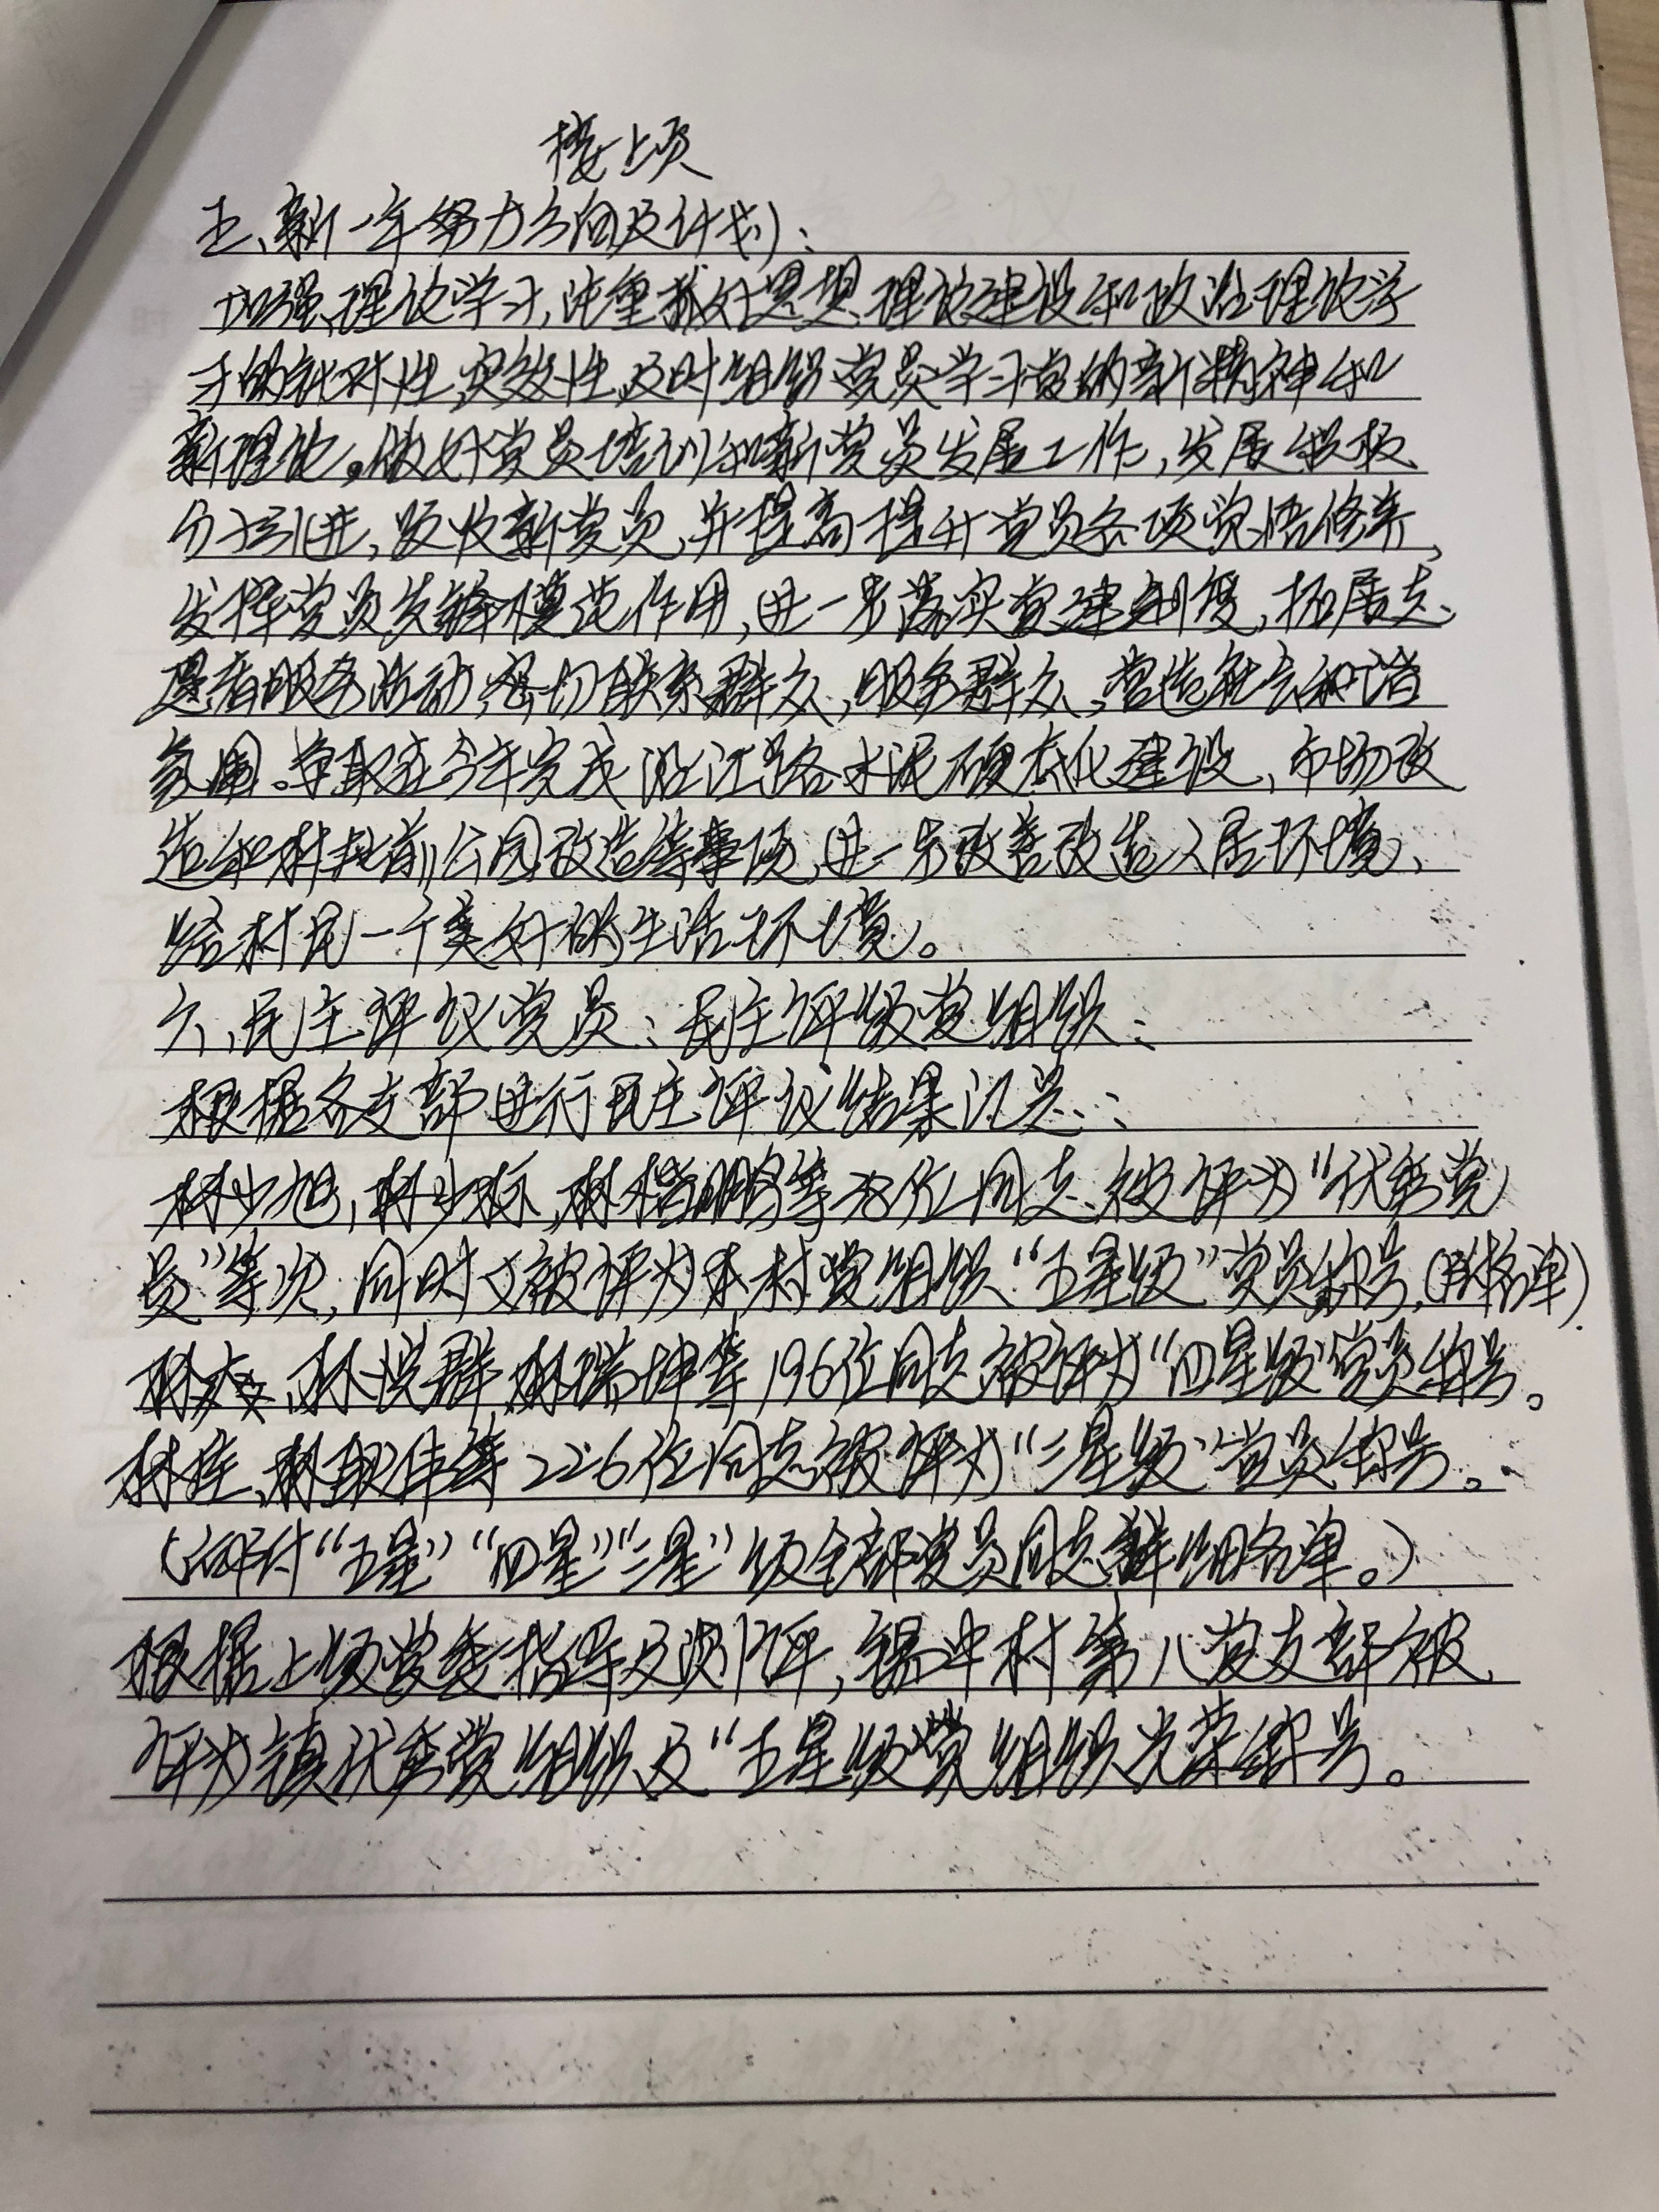 接上页
五、新一年努力方向及计划:
加强理论学习,注重抓好思想理论建设和政治理论学
习的针对性,实效性,及时组织党员学习党的新精神和
新理论。做好党员培训和新党员发展工作,发展积极
分子引进,吸收新党员,并提高提升党员各项党悟修养,
发挥党员先锋模范作用,进一步落实党建制度,拓展志
愿者服务活动,密切联系群众,服务群众,营造社会和谐
氛围。争取在今年完成沿江路水泥硬底化建设,市场改
造和村址前公园改造等事项,进一步改善改造人居环境,
给村民一个美好的生活环境。
六、民主评议党员:民主评级党组织:
根据各支部进行民主评议结果汇总:
林少旭,林少标,林楷鹏等 位同志被评为"优秀党
员"等次,同时又被评为本村党组织"五星级"党员称号,(附名单)
林 、林说群,林瑞坤等196位同志被评为"四星级"党员称号。
林 、林 佳等226位同志被评为"三星级"党员称号。
(评付"五星""四星""三星"级全部党员同志详细名单。)
根据上级党委指导及测评,锡中村第八党支部被
评为镇优秀党组织及"五星级党组织光荣称号。